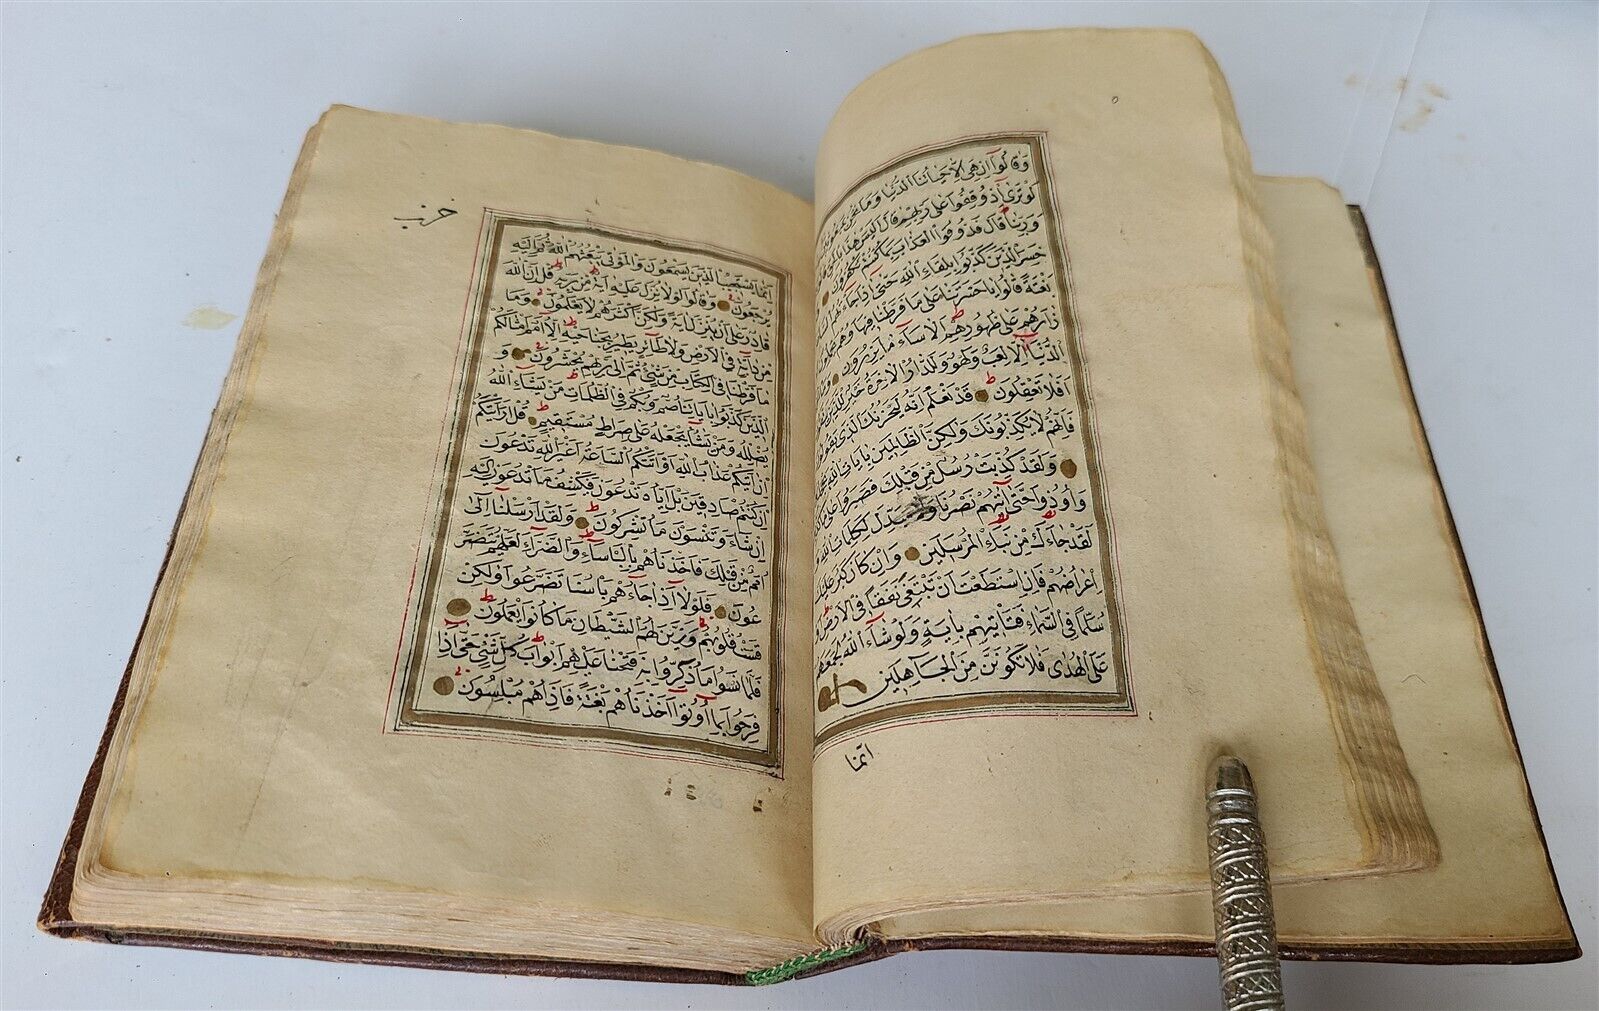 وَقَالُوا اِنْ هِيَ اِلَّا حَيَاتُنَا الدُّنْيَا وَمَا نَحْنُ
لَوْ تَرٰى اِذْ وُقِفُوا عَلٰى رَبِّهِمْ قَالَ اَلَيْسَ هٰذَا
وَرَبِّنَا قَالَ فَذُوقُوا الْعَذَابَ بِمَا كُنْتُمْ تَكْفُرُونَ
خَسِرَ الَّذِينَ كَذَّبُوا بِلِقَاءِ اللّٰهِ حَتّٰى اِذَا جَاءَتْهُمُ
بَغْتَةً قَالُوا يَا حَسْرَتَنَا عَلٰى مَا فَرَّطْنَا فِيهَا وَهُمْ
زَارَهُمْ عَلٰى ظُهُورِهِمْ اَلَا سَاءَ مَا يَزِرُونَ
الدُّنْيَا اِلَّا لَعِبٌ وَلَهْوٌ وَلَلدَّارُ الْاٰخِرَةُ خَيْرٌ لِلَّذِينَ
اَفَلَا تَعْقِلُونَ قَدْ نَعْلَمُ اِنَّهُ لَيَحْزُنُكَ الَّذِي
فَاِنَّهُمْ لَا يُكَذِّبُونَكَ وَلٰكِنَّ الظَّالِمِينَ بِاٰيَاتِ اللّٰهِ
وَلَقَدْ كُذِّبَتْ رُسُلٌ مِنْ قَبْلِكَ فَصَبَرُوا عَلٰى مَا
وَاُوذُوا حَتّٰى اَتٰيهُمْ نَصْرُنَا وَلَا مُبَدِّلَ لِكَلِمَاتِ اللّٰهِ
لَقَدْ جَاءَكَ مِنْ نَبَاءِ الْمُرْسَلِينَ وَاِنْ كَانَ كَبُرَ عَلَيْكَ
اِعْرَاضُهُمْ فَاِنِ اسْتَطَعْتَ اَنْ تَبْتَغِيَ نَفَقًا فِي الْاَرْضِ اَوْ
سُلَّمًا فِي السَّمَاءِ فَتَأْتِيَهُمْ بِاٰيَةٍ وَلَوْ شَاءَ اللّٰهُ لَجَمَعَهُمْ
عَلَى الْهُدٰى فَلَا تَكُونَنَّ مِنَ الْجَاهِلِينَ
انما
حزب
اِنَّمَا يَسْتَجِيبُ الَّذِينَ يَسْمَعُونَ وَالْمَوْتٰى يَبْعَثُهُمُ اللّٰهُ ثُمَّ اِلَيْهِ
يُرْجَعُونَ وَقَالُوا لَوْلَا نُزِّلَ عَلَيْهِ اٰيَةٌ مِنْ رَبِّهِ قُلْ اِنَّ اللّٰهَ
قَادِرٌ عَلٰى اَنْ يُنَزِّلَ اٰيَةً وَلٰكِنَّ اَكْثَرَهُمْ لَا يَعْلَمُونَ وَمَا
مِنْ دَابَّةٍ فِي الْاَرْضِ وَلَا طَائِرٍ يَطِيرُ بِجَنَاحَيْهِ اِلَّا اُمَمٌ اَمْثَالُكُمْ
مَا فَرَّطْنَا فِي الْكِتَابِ مِنْ شَيْءٍ ثُمَّ اِلٰى رَبِّهِمْ يُحْشَرُونَ وَ
الَّذِينَ كَذَّبُوا بِاٰيَاتِنَا صُمٌّ وَبُكْمٌ فِي الظُّلُمَاتِ مَنْ يَشَاءِ اللّٰهُ
يُضْلِلْهُ وَمَنْ يَشَأْ يَجْعَلْهُ عَلٰى صِرَاطٍ مُسْتَقِيمٍ قُلْ اَرَاَيْتَكُمْ
اِنْ اَتٰيكُمْ عَذَابُ اللّٰهِ اَوْ اَتَتْكُمُ السَّاعَةُ اَغَيْرَ اللّٰهِ تَدْعُونَ
اِنْ كُنْتُمْ صَادِقِينَ بَلْ اِيَّاهُ تَدْعُونَ فَيَكْشِفُ مَا تَدْعُونَ اِلَيْهِ
اِنْ شَاءَ وَتَنْسَوْنَ مَا تُشْرِكُونَ وَلَقَدْ اَرْسَلْنَا اِلٰى
اُمَمٍ مِنْ قَبْلِكَ فَاَخَذْنَاهُمْ بِالْبَأْسَاءِ وَالضَّرَّاءِ لَعَلَّهُمْ يَتَضَرَّ
عُونَ فَلَوْلَا اِذْ جَاءَهُمْ بَأْسُنَا تَضَرَّعُوا وَلٰكِنْ
قَسَتْ قُلُوبُهُمْ وَزَيَّنَ لَهُمُ الشَّيْطَانُ مَا كَانُوا يَعْمَلُونَ
فَلَمَّا نَسُوا مَا ذُكِّرُوا بِهِ فَتَحْنَا عَلَيْهِمْ اَبْوَابَ كُلِّ شَيْءٍ حَتّٰى اِذَا
فَرِحُوا بِمَا اُوتُوا اَخَذْنَاهُمْ بَغْتَةً فَاِذَا هُمْ مُبْلِسُونَ